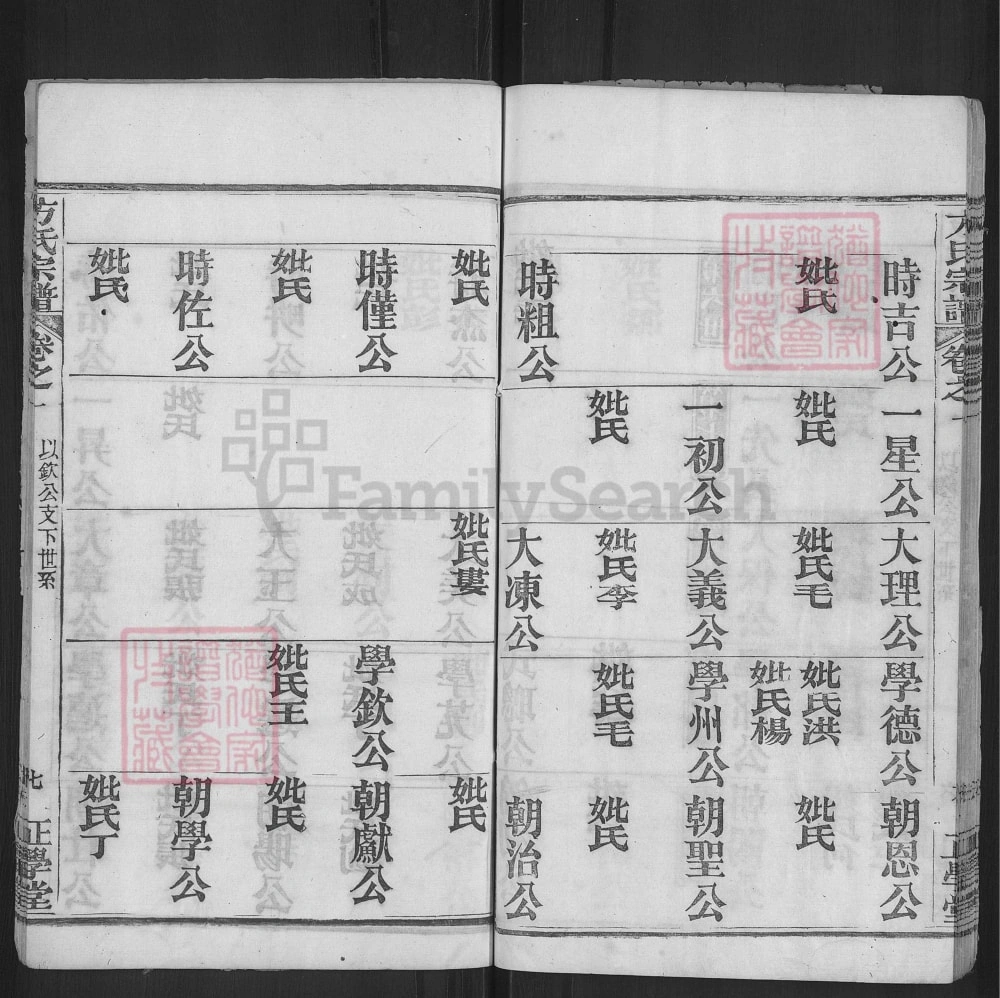 方氏宗譜
卷之一
時吉公
妣氏
時粗公
一星公
妣氏
一初公
妣氏
大理公
妣氏毛
大義公
妣氏李
大凍公
學德公
妣氏洪
妣氏楊
學州公
妣氏毛
朝恩公
妣氏
朝聖公
妣氏
朝治公
妣氏
時僅公
妣氏
時佐公
妣氏
妣氏婁
學欽公
妣氏王
妣氏
朝獻公
妣氏
朝學公
妣氏丁
方氏宗譜
卷之一
以欽公支下世系
正學堂
FamilySearch